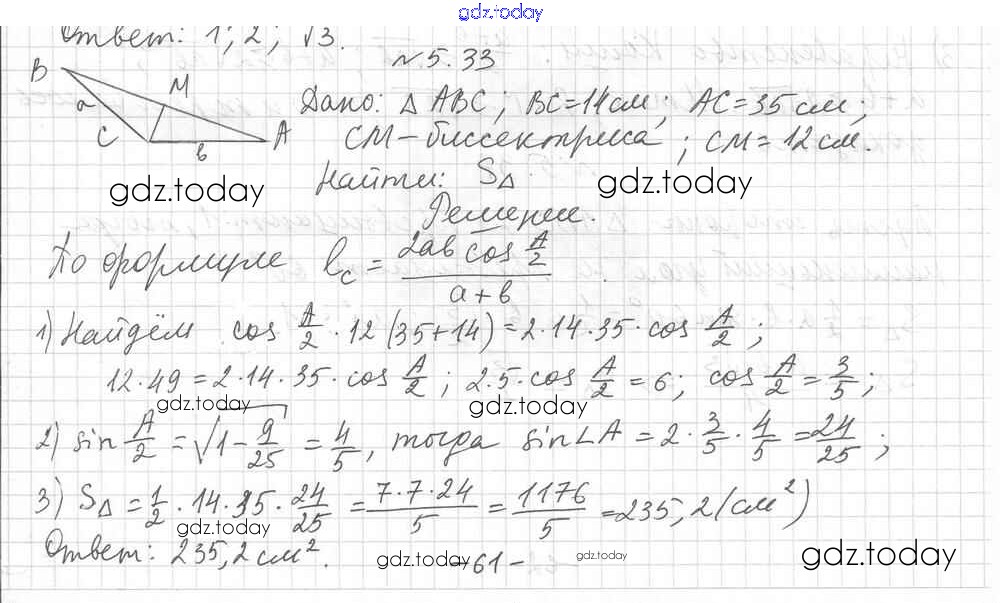 gdz.today
Ответ: 1; 2; √3.
№5.33
B
M
a
C
b
A
Дано: △ABC; BC=14см; AC=35см;
CM-биссектриса; CM=12см.
gdz.today
Найти: S△
gdz.today
Решение.
По формуле l_c = 2ab cos A/2 / a+b
1) Найдём cos A/2 · 12 (35+14) = 2·14·35·cos A/2;
12·49 = 2·14·35·cos A/2; 2·5·cos A/2 = 6; cos A/2 = 3/5;
gdz.today
gdz.today
2) sin A/2 = √1-9/25 = 4/5, тогда sin∠A = 2·3/5·4/5 = 24/25;
3) S△ = 1/2·14·35·24/25 = 7·7·24/5 = 1176/5 = 235,2 (см²)
gdz.today
Ответ: 235,2 см².
gdz.today
-61-
gdz.today
gdz.today